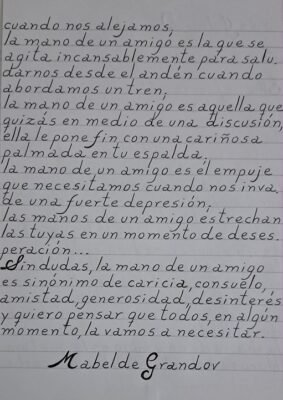 cuando nos alejamos,
la mano de un amigo es la que se
agita incansablemente para salu-
darnos desde el andén cuando
abordamos un tren;
la mano de un amigo es aquella que
quizás en medio de una discusión,
ella le pone fin con una cariñosa
palmada en tu espalda;
la mano de un amigo es el empuje
que necesitamos cuando nos inva-
de una fuerte depresión;
las manos de un amigo estrechan
las tuyas en un momento de deses-
peración...
Sin dudas, la mano de un amigo
es sinónimo de caricia, consuelo,
amistad, generosidad, desinterés
y quiero pensar que todos, en algún
momento, la vamos a necesitar.
Mabel de Grandov